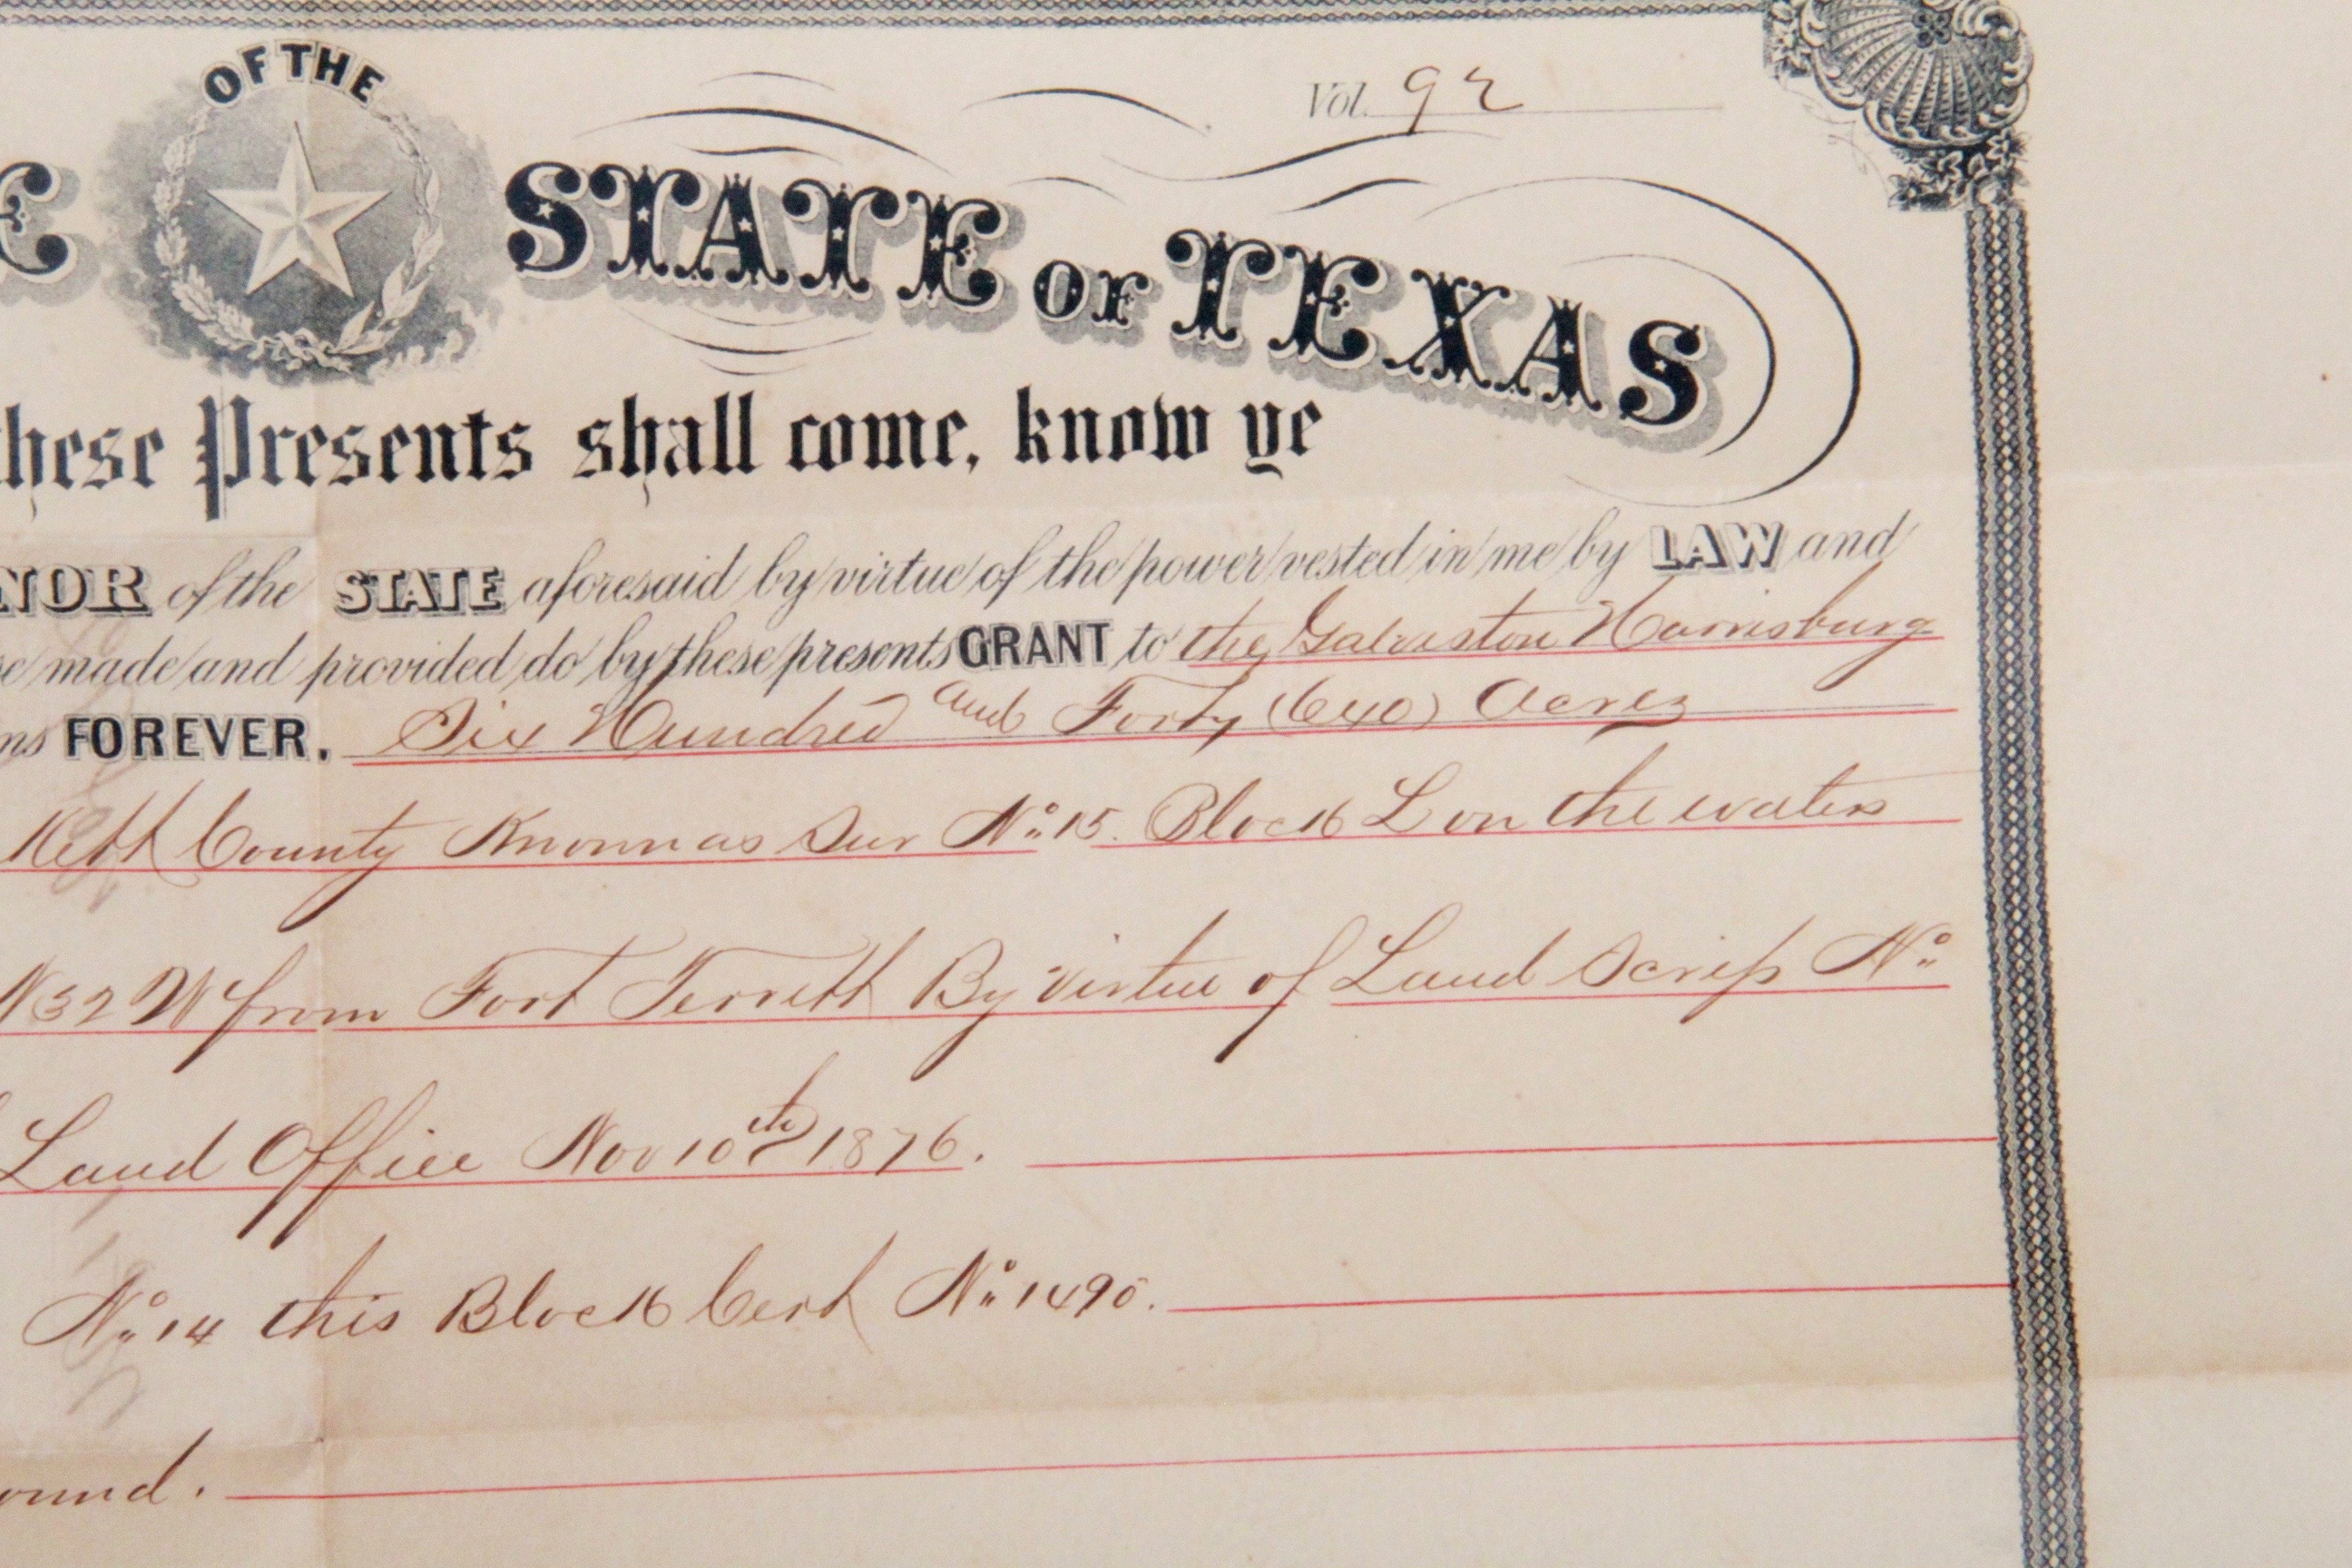 Vol. 92
OF THE
STATE OF TEXAS
these Presents shall come, know ye
NOR of the STATE aforesaid by virtue of the power vested in me by LAW and
made and provided do by these presents GRANT to the Galveston Harrisburg
ns FOREVER. Six Hundred and Forty (640) Acres
County Known as Sur No. 15. Block L on the waters
N 32 W from Fort Terrett By virtue of Land Scrip No.
Land Office Nov 10th 1876.
No. 14 this Block Cert No. 1490.
ound.